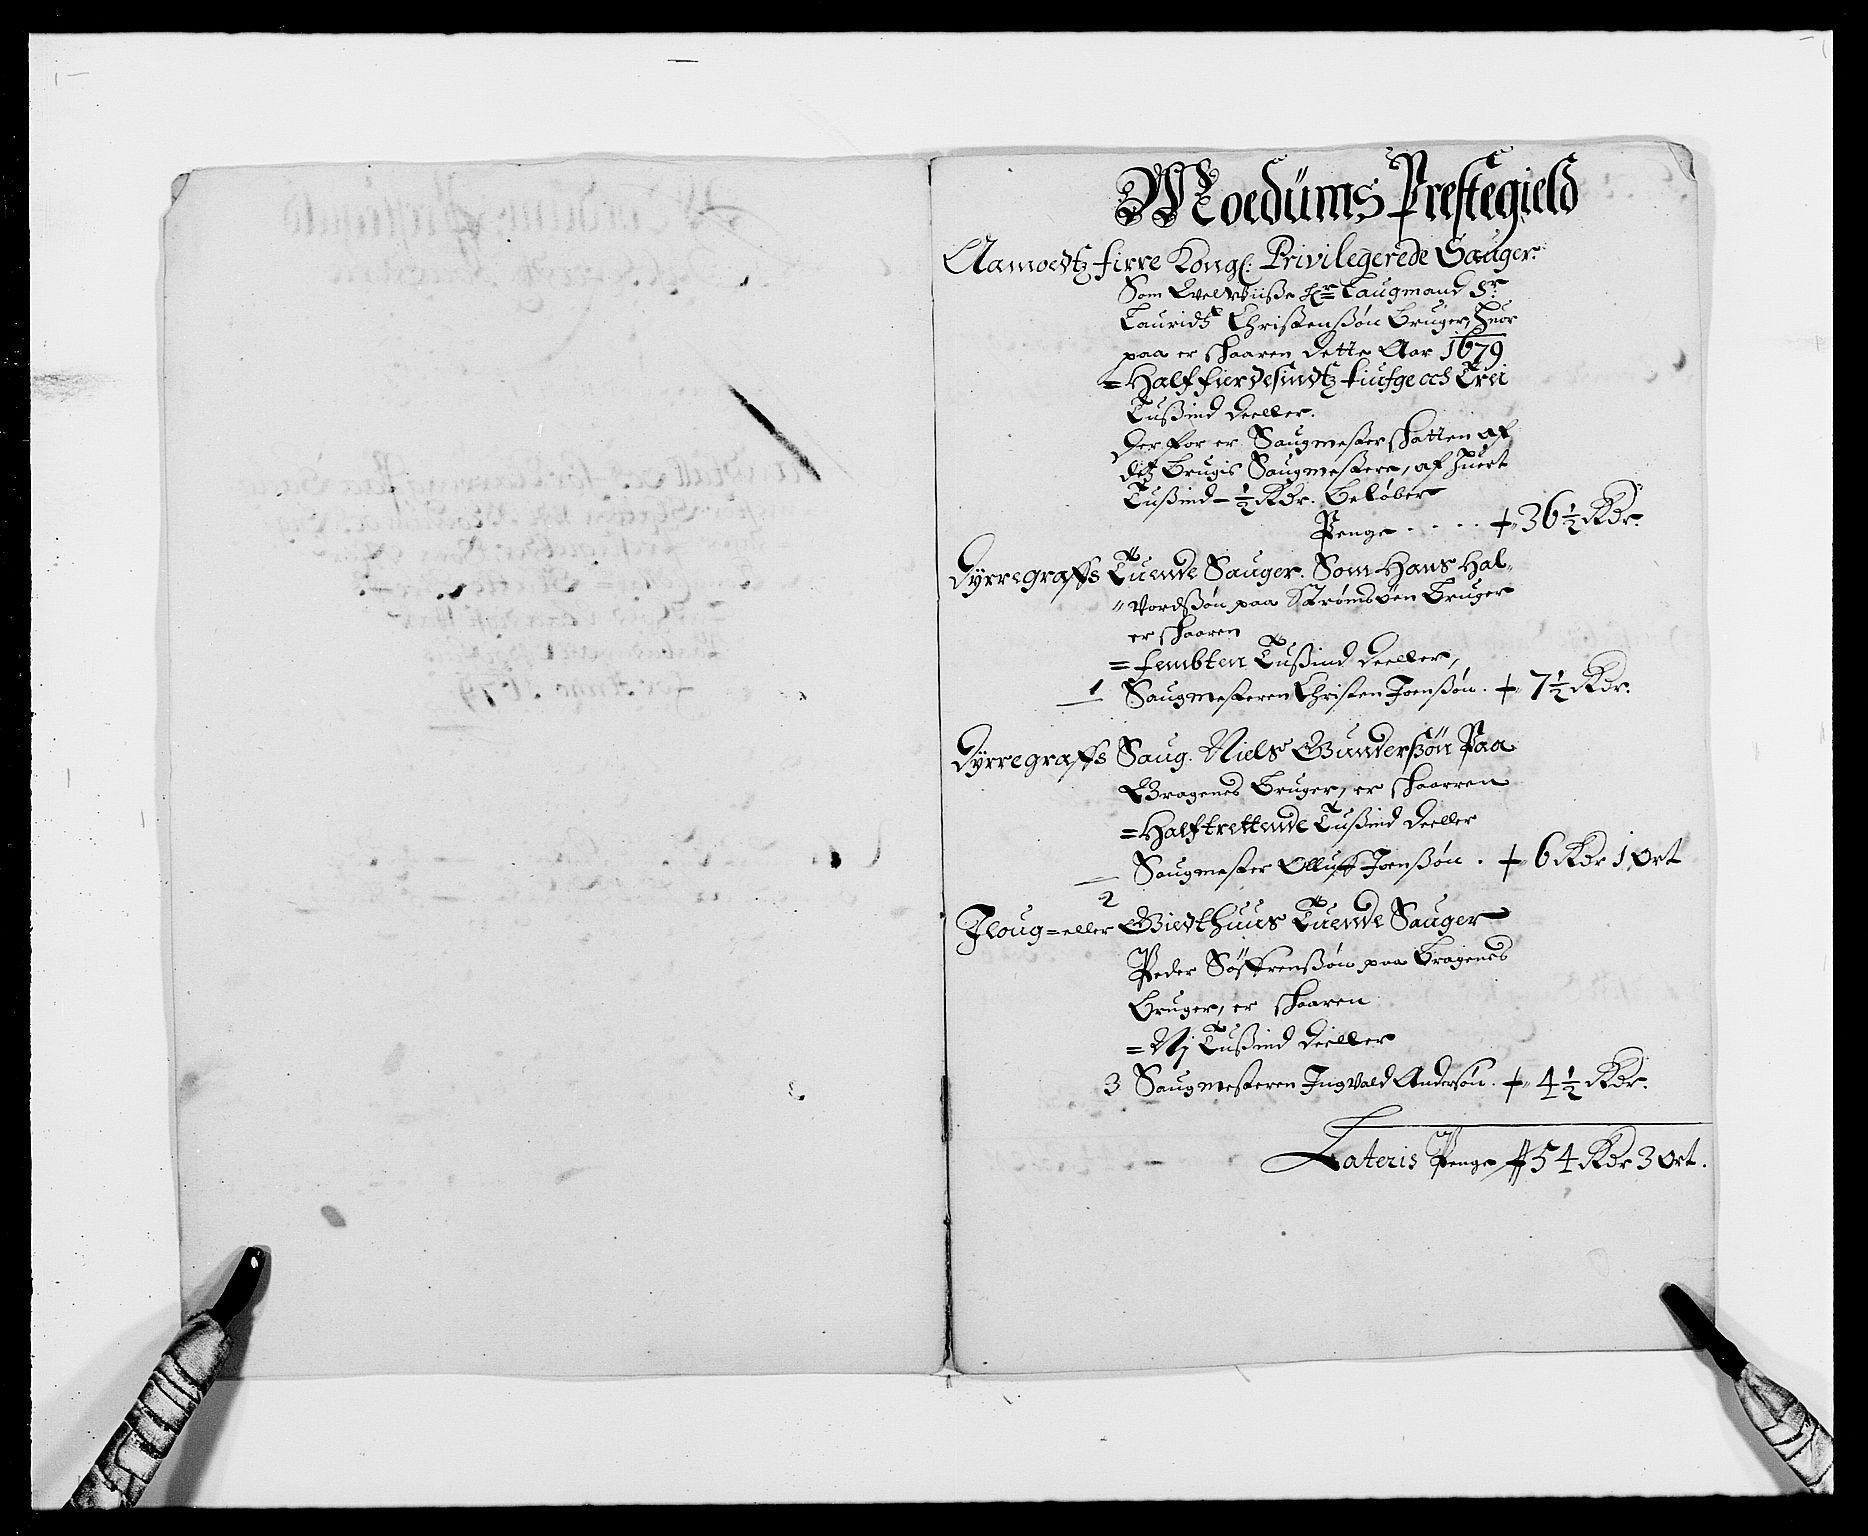 Moedüms Prestegield
Aamoedtz firre Kongl: Privilegerede Sauger.
Som Welwiise Hr Laugmand Sr
Lauridtz Christensßøn Bruger, huor
paa er skaaren dette Aar 1679
= Halffierdesindtz tiufge och Trei
Tußind deeller.
Derfor er Saugmesterskatten af
ditz Brugis Saugmestere, af huert
Tußind - ½ Rdr. beløber
Penge . . . . 36½ Rdr.
Dÿrregraffs Tuende Sauger. Som Hans Hal-
"vordßøn paa Strømsøen Bruger
er skaaren
= fembten Tußind deeller,
1 Saugmesteren Christen Joenßøn . 7½ Rdr.
Dÿrregraffs Saug. Niels Gunderßøn Paa
Bragenes Bruger, er skaarren
= Halftrettende Tußind deeller
2 Saugmester Olluff Joenßøn . 6 Rdr 1 Ort
Floug = eller Giedthuus Tuende Sauger
Peder Søffrenßøn paa Bragenes
Bruger, er skaaren
= Nj Tußind deeller
3 Saugmesteren Ingvald Andersøn . 4½ Rdr.
Lateris Penge 54 Rdr 3 Ort.